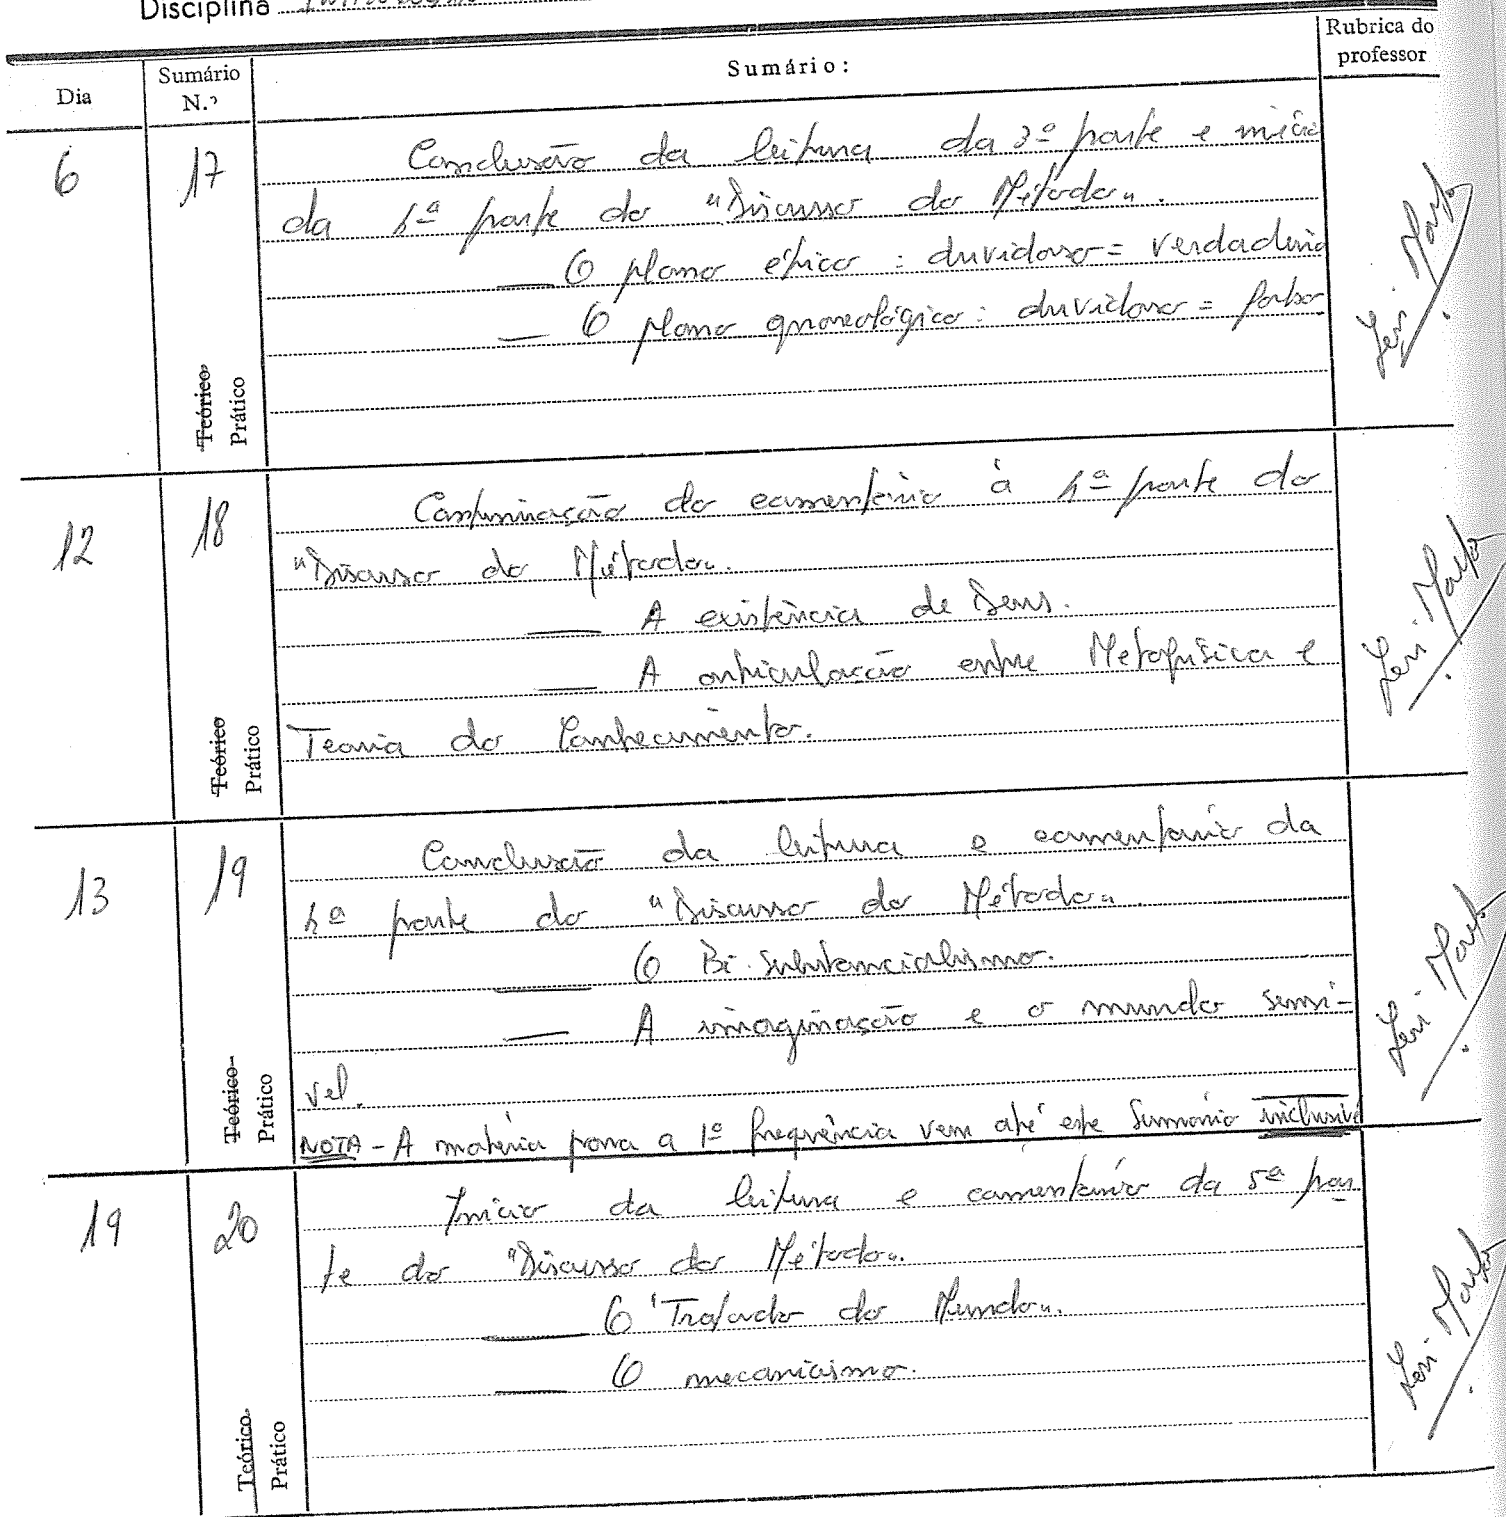 Disciplina
Dia
Sumário N.º
Sumário:
Rubrica do professor
6
17
Conclusão da leitura da 3ª parte e início
da 4ª parte do "Discurso do Método".
— O plano ético: duvidoso = verdadeiro
— O plano gnoseológico: duvidoso = falso
Teórico
Prático
12
18
Continuação do comentário à 4ª parte do
"Discurso do Método".
— A existência de Deus.
— A articulação entre Metafísica e
Teoria do Conhecimento.
Teórico
Prático
13
19
Conclusão da leitura e comentário da
4ª parte do "Discurso do Método".
— O Bi-substancialismo.
— A imaginação e o mundo sensí-
vel.
NOTA - A matéria para a 1ª frequência vem até este Sumário inclusivé
Teórico
Prático
19
20
Início da leitura e comentário da 5ª par-
te do "Discurso do Método".
— O "Tratado do Mundo".
— O mecanicismo.
Teórico
Prático